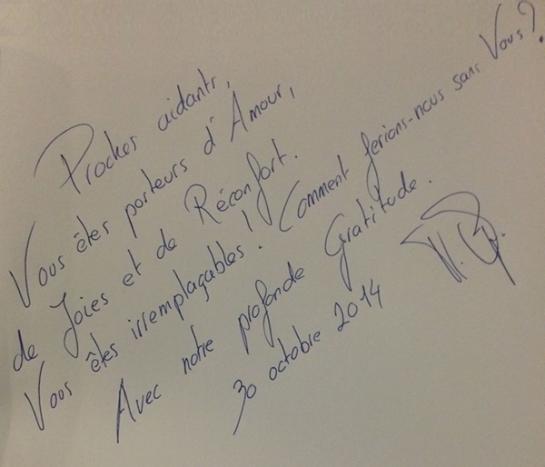 Proches aidants,
Vous êtes porteurs d'Amour,
de Joies et de Réconfort.
Vous êtes irremplaçables! Comment ferions-nous sans Vous?
Avec notre profonde Gratitude.
30 octobre 2014